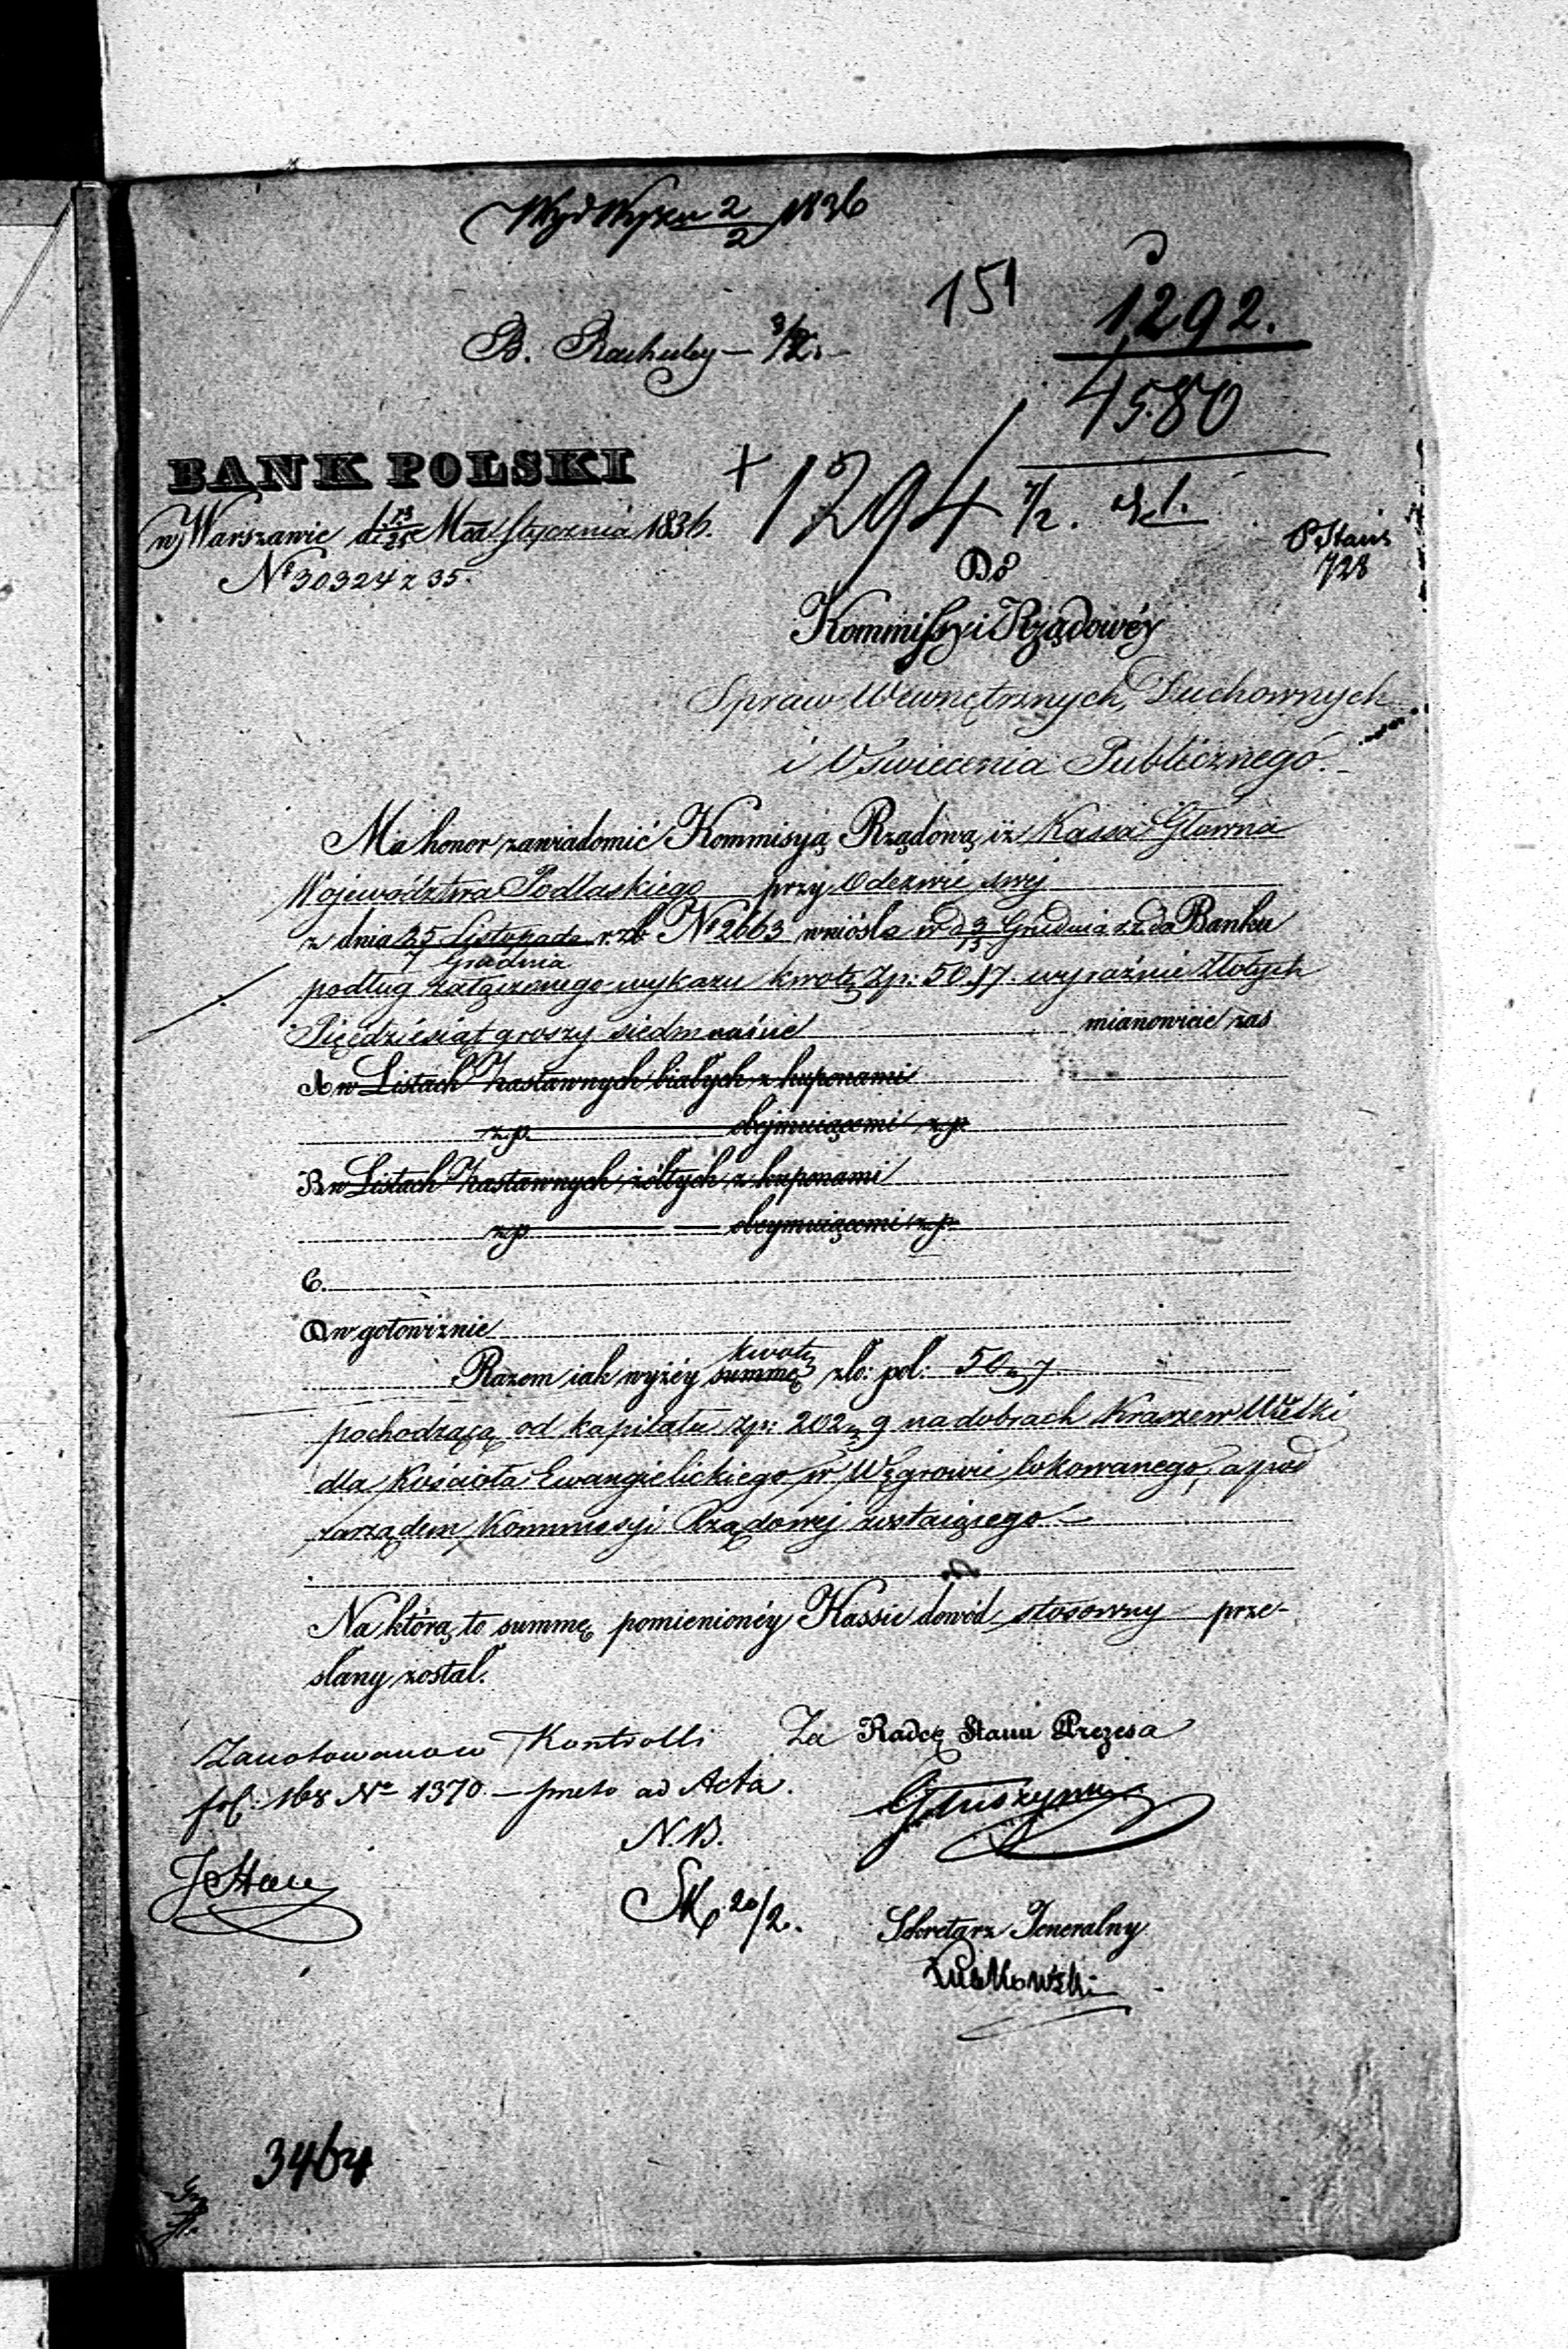 Wyd Wyzn 2/2 1836
151
1292.
B. Rachuby — 3/2. —
4580
BANK POLSKI
+ 1294 7/2.
w Warszawie d. 13/25 Mca Stycznia 1836.
P Stans
728
Nº 30324 z 35.
Do
Kommissyi Rządowéy
Spraw Wewnętrznych, Duchownych
i Oświecenia Publicznego. —
Ma honor zawiadomić Kommisyją Rządową, iż Kassa Główna
Województwa Podlaskiego przy Odezwie swej
z dnia 25 Listopada r. z. b Nº 2663 wniósła w d 3/15 Grudnia r. z. do Banku
7 Grudnia
podług załączonego wykazu kwotę Zp: 50.17. wyraźnie Złotych
Pięćdziesiąt groszy siedmnaście mianowicie zaś
A w Listach Zastawnych białych z kuponami
z.p. obejmuiącemi z.p.
B w Listach Zastawnych żółtych z kuponami
z.p. obeymuiącemi z.p.
C.
D w gotowiznie
kwotę
Razem iak wyżéy summę zło: pol: 50 „ 17
pochodzącą od kapitału zp: 202 „ 9 na dobrach Kraszew Wielki
dla Kościoła Ewangielickiego w Węgrowie lokowanego, a pod
zarządem Kommissyi Rządowej zostaiącego —
Na którą to summę pomienionéy Kassie dowód stosowny prze-
słany został.
Zanotowano w Kontrolli
Za Radcę Stanu Prezesa
fol: 168 Nº 1370. — preto ad Acta.
N.B.
20/2.
Sekretarz Jeneralny
3464